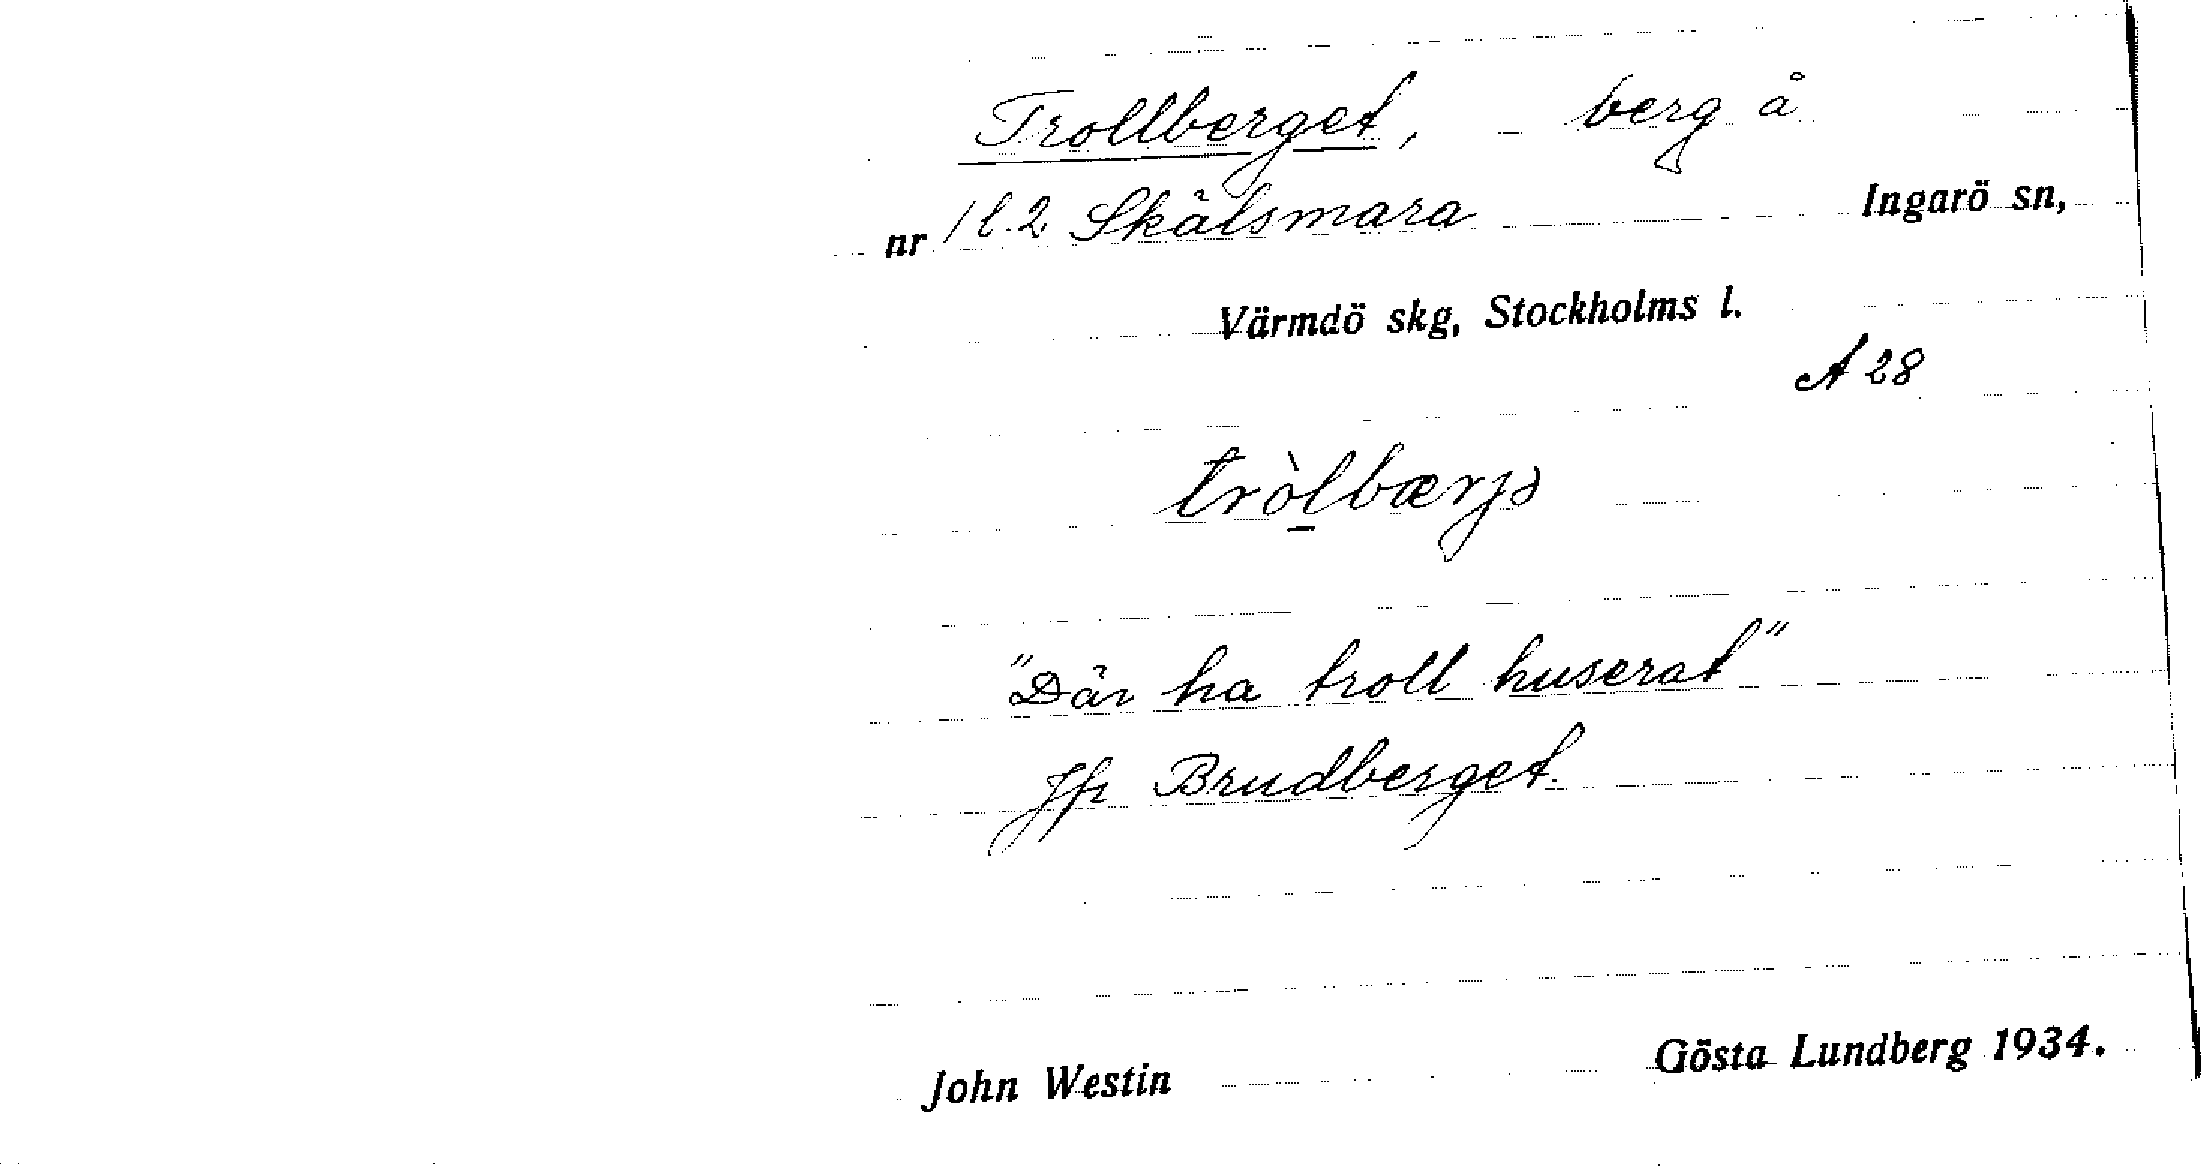 Trollberget, - berg å
nr 1 l. 2 Skälsmara Ingarö sn,
Värmdö skg, Stockholms l.
A 28
tròl̲bærjə
"Där ha troll huserat"
Jfr Brudberget.
John Westin Gösta Lundberg 1934.